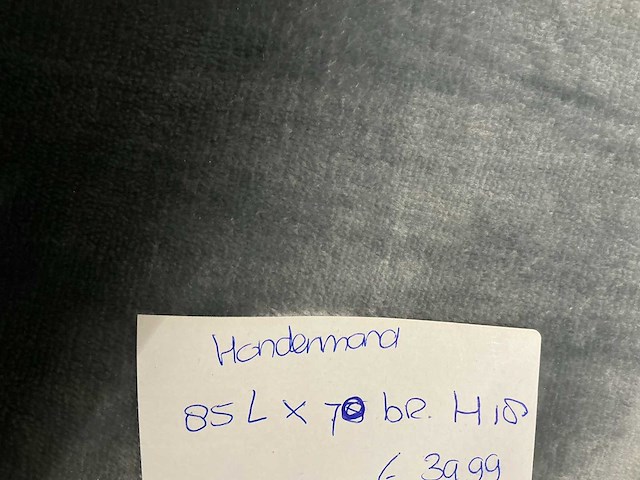 Hondenmand
85 L x 70 br. H 18
€ 39.99